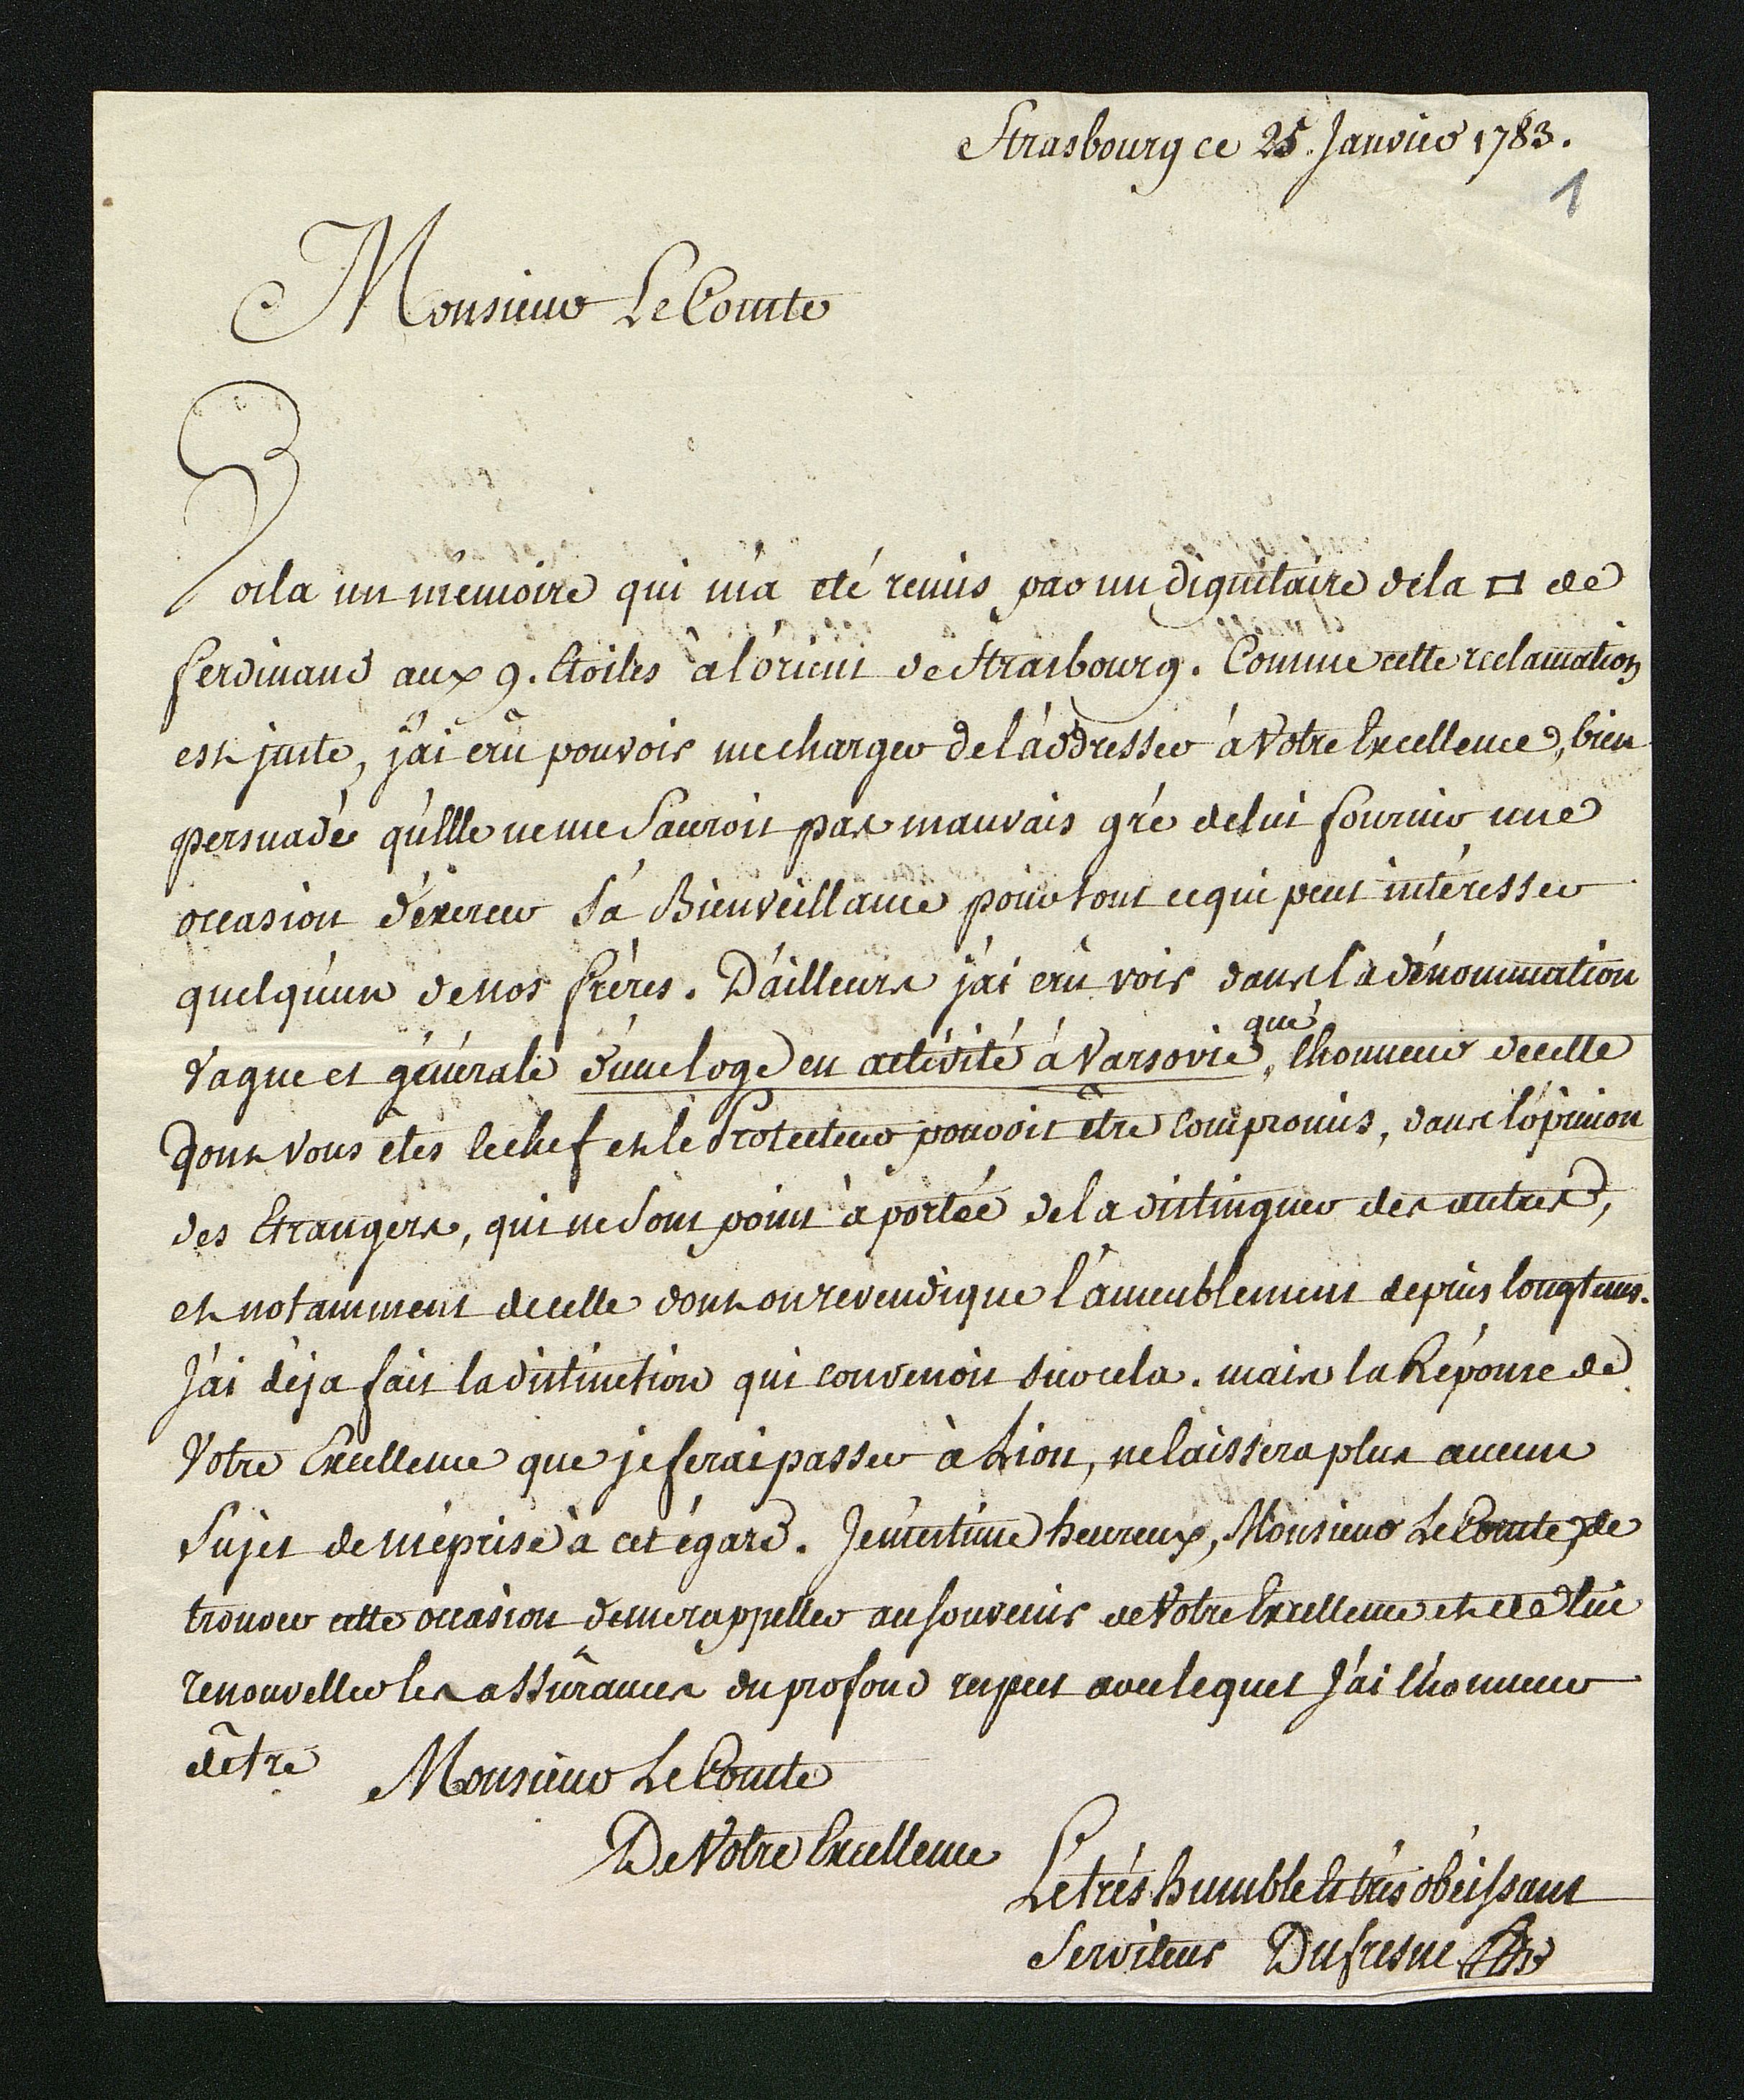 Strasbourg ce 25. Janvier 1783.
1
Monsieur Le Comte
Voila un mémoire qui m'a eté remis par un dignitaire de la □ de
ferdinand aux 9. Etoiles à l'orient de Strasbourg. Comme cette reclamation
est juste, j'ai crû pouvoir me charger de l'addresser à Votre Excellence, bien
persuadé qu'Elle ne me Sauroit pas mauvais gré de lui fournir une
occasion d'éxercer Sa Bienveillance pour tout ce qui peut intéresser
quelqu'un de nos frères. D'ailleurs j'ai crû voir dans la dénomination
vague et générale d'une loge en activité à Varsovie, que l'honneur de celle
dont Vous êtes le chef et le Protecteur pouvoit être compromis, dans l'opinion
des Etrangers, qui ne Sont point à portée de la distinguer des autres,
et notamment de celle dont on revendique l'ameublement depuis longtems.
J'ai déja fait la distinction qui convenoit sur cela. mais la Réponse de
Votre Excellence que je ferai passer à Lion, ne laissera plus aucun
Sujet de méprise à cet égard. Je m'estime heureux, Monsieur Le Comte, de
trouver cette occasion de me rappeller au Souvenir de Votre Excellence et de lui
renouveller les assûrances du profond respect avec lequel J'ai l'honneur
d'être Monsieur Le Comte
De Votre Excellence
Le très humble et très obéissant
Serviteur Dufresne